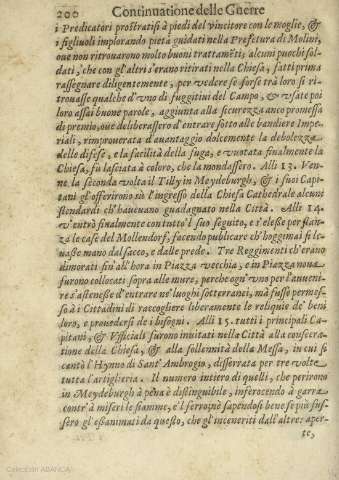 200 Continuatione delle Guerre
i Predicatori prostratisi à piedi del vincitore con le moglie, &
i figliuoli implorando pietà guidati nella Prefetura di Molini,
oue non ritrouarono molto buoni trattamẽti; alcuni puochi sol-
dati, che con gl'altri s'erano ritirati nella Chiesa, fatti prima
rassegnare diligentemente, per vedere se forse trà loro si ri-
trouasse qualche d'vno di fuggitiui del Campo, & vsate poi
loro assai buone parole, aggiunta alla sicurezza anco promessa
di premio, oue deliberassero d'entrare sotto alle bandiere Impe-
riali, rimprouerata d'auantaggio dolcemente la debolezza
delle difese, e la facilità della fuga, e vuotata finalmente la
Chiesa, fù lasciata à coloro, che la mondassero. Alli 13. Ven-
ne la seconda volta il Tilly in Meydeburgh, & i suoi Capi-
tani gl'offerirono sù l'ingresso della Chiesa Cathedrale alcuni
stendardi ch'haueuano guadagnato nella Città. Alli 14.
v'entrò finalmente con tutto'l suo seguito, e s'elesse per stan-
za le case del Mollendorf, facendo publicare ch'hoggimai si le-
uasse mano dal sacco, e dalle prede. Tre Regimenti ch'erano
dimorati sin'all'hora in Piazza vecchia, e in Piazza noua
furono collocati sopra alle mure, perche ogn'vno per l'auueni-
re s'astenesse d'entrare ne' luoghi sotterranei, mà fusse permes-
so à i Cittadini di raccogliere liberamente le reliquie de' beni
loro, e prouedersi de i bisogni. Alli 15. tutti i principali Ca-
pitani, & Vfficiali furono inuitati nella Città alla consecra-
tione della Chiesa, & alla sollennità della Messa, in cui si
cantò l'Hymno di Sant'Ambrogio, disserrata per tre volte
tutta l'artiglieria. Il numero intiero di quelli, che perirono
in Meydeburgh à pena è distinguibile, inferocendo à garra
contr'à miseri le fiamme, e'l ferro; nè sapendosi bene se più fus-
sero gl'essanimati da questo, che gl'inceneriti dall'altre: aper-
se,
Colección ABANCA